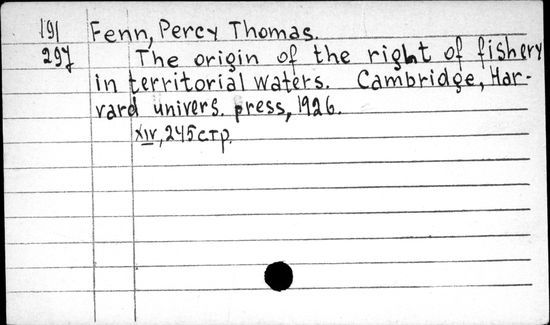 191 Fenn, Percy Thomas.
297 The origin of the right of fishery
in territorial waters. Cambridge, Har-
vard univers. press, 1926.
XIV, 245 стр.